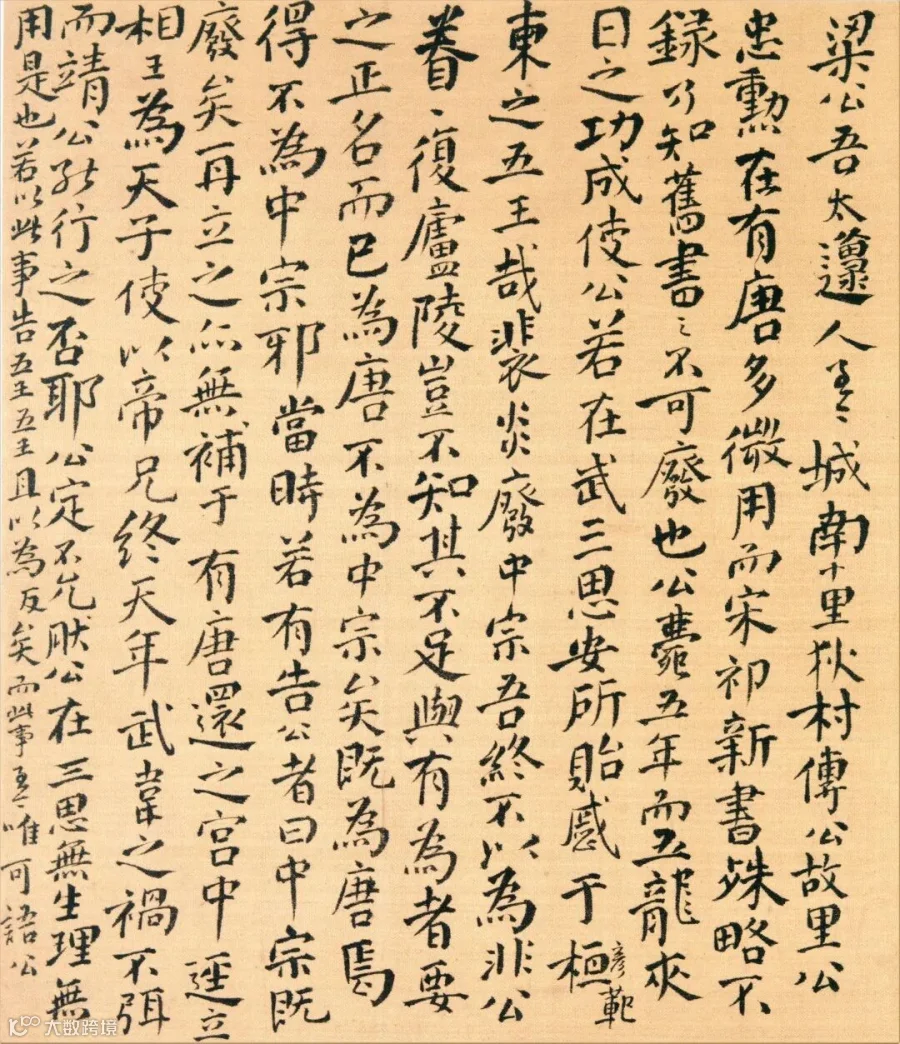 梁公吾太邍人至今城南十里狄村傳公故里公
忠勲在有唐多微用而宋祁新書殊略不
録乃知舊書〻不可廢也公薨五年而五龍夾
日之功成使公若在武三思安所貽慼于桓彦範
東之五王哉裴炎廢中宗吾終不以為非公
眷〻復廬陵豈不知其不足與有為者要
之正名而已為唐不為中宗矣既為唐焉
得不為中宗邪當時若有告公者曰中宗既
廢矣再立之亦無補于有唐還之宮中迳立
相王為天子使以帝兄終天年武韋之禍不弭
而靖公能行之否耶公定不允肰公在三思無生理無
用是也若以此事告五王五王且以為反矣而此事至今唯可語公
大数跨境